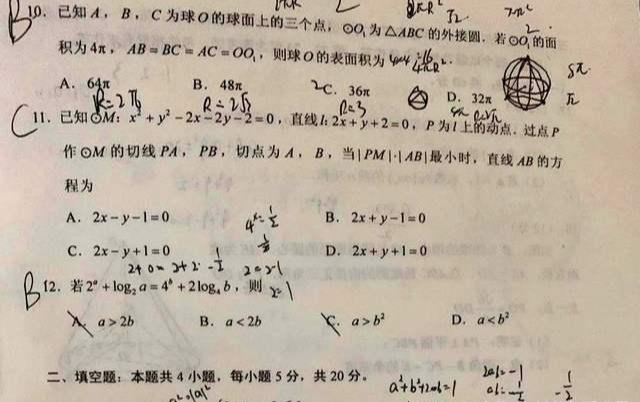 B 10. 已知 A，B，C 为球 O 的球面上的三个点，⊙O₁ 为 △ABC 的外接圆．若 ⊙O₁ 的面
积为 4π，AB = BC = AC = OO₁，则球 O 的表面积为 4πR².
A. 64π B. 48π C. 36π D. 32π
R=2 R=2√3 R=3
8π
C 11. 已知 ⊙M：x² + y² − 2x − 2y − 2 = 0，直线 l：2x + y + 2 = 0，P 为 l 上的动点．过点 P
作 ⊙M 的切线 PA，PB，切点为 A，B，当 |PM|·|AB| 最小时，直线 AB 的方
程为
A. 2x − y − 1 = 0 B. 2x + y − 1 = 0
C. 2x − y + 1 = 0 D. 2x + y + 1 = 0
B 12. 若 2ᵃ + log₂ a = 4ᵇ + 2log₄ b，则
A. a > 2b B. a < 2b C. a > b² D. a < b²
二、填空题：本题共 4 小题，每小题 5 分，共 20 分．
a²+b²+2ab=1
2ab=-1
ab=-1/2
-1/2